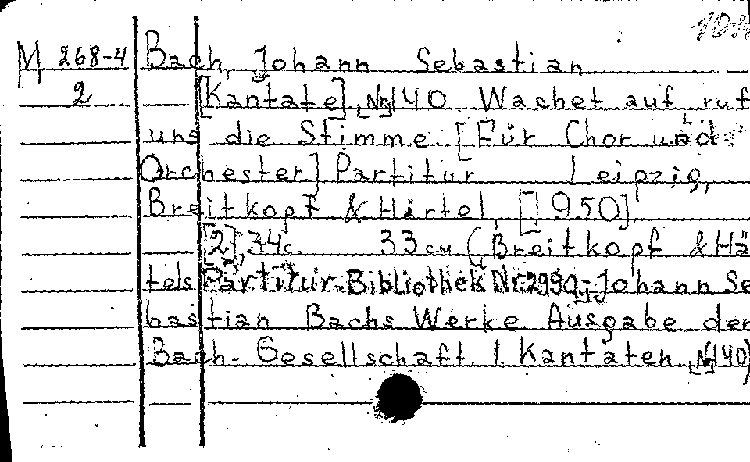 M 268-4 Bach, Johann Sebastian
2 [Kantate], Nr 140 Wachet auf ruf
uns die Stimme [Für Chor und
Orchester] Partitur Leipzig,
Breitkopf & Härtel, [1950]
[2], 34 c. 33 см (Breitkopf & Hä
tels Partitur-Bibliothek Nr. 2990 - Johann Se
bastian Bachs Werke Ausgabe der
Bach-Gesellschaft 1 Kantaten, Nr 140)